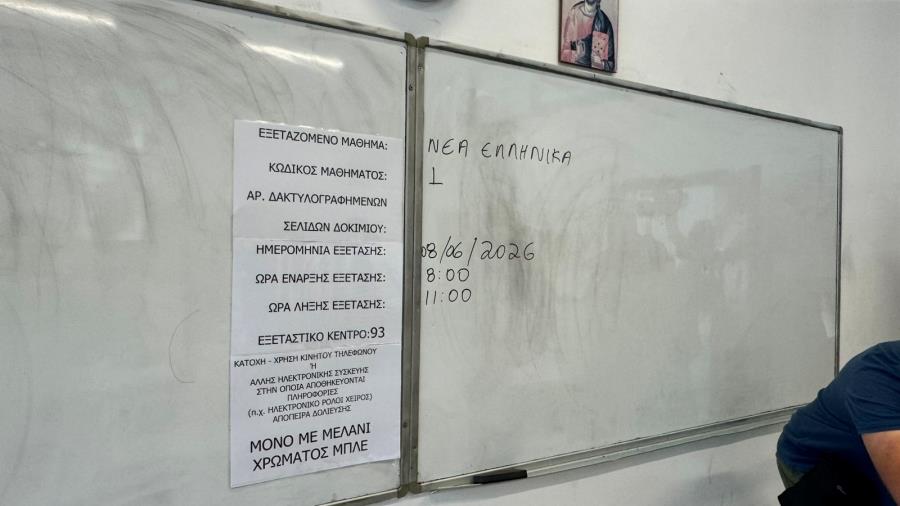 ΕΞΕΤΑΖΟΜΕΝΟ ΜΑΘΗΜΑ: ΝΕΑ ΕΛΛΗΝΙΚΑ
ΚΩΔΙΚΟΣ ΜΑΘΗΜΑΤΟΣ: 1
ΑΡ. ΔΑΚΤΥΛΟΓΡΑΦΗΜΕΝΩΝ
ΣΕΛΙΔΩΝ ΔΟΚΙΜΙΟΥ:
ΗΜΕΡΟΜΗΝΙΑ ΕΞΕΤΑΣΗΣ: 08/06/2026
ΩΡΑ ΕΝΑΡΞΗΣ ΕΞΕΤΑΣΗΣ: 8:00
ΩΡΑ ΛΗΞΗΣ ΕΞΕΤΑΣΗΣ: 11:00
ΕΞΕΤΑΣΤΙΚΟ ΚΕΝΤΡΟ:93
ΚΑΤΟΧΗ - ΧΡΗΣΗ ΚΙΝΗΤΟΥ ΤΗΛΕΦΩΝΟΥ
Ή
ΑΛΛΗΣ ΗΛΕΚΤΡΟΝΙΚΗΣ ΣΥΣΚΕΥΗΣ
ΣΤΗΝ ΟΠΟΙΑ ΑΠΟΘΗΚΕΥΟΝΤΑΙ
ΠΛΗΡΟΦΟΡΙΕΣ
(π.χ. ΗΛΕΚΤΡΟΝΙΚΟ ΡΟΛΟΪ ΧΕΙΡΟΣ)
ΑΠΟΠΕΙΡΑ ΔΟΛΙΕΥΣΗΣ
ΜΟΝΟ ΜΕ ΜΕΛΑΝΙ
ΧΡΩΜΑΤΟΣ ΜΠΛΕ